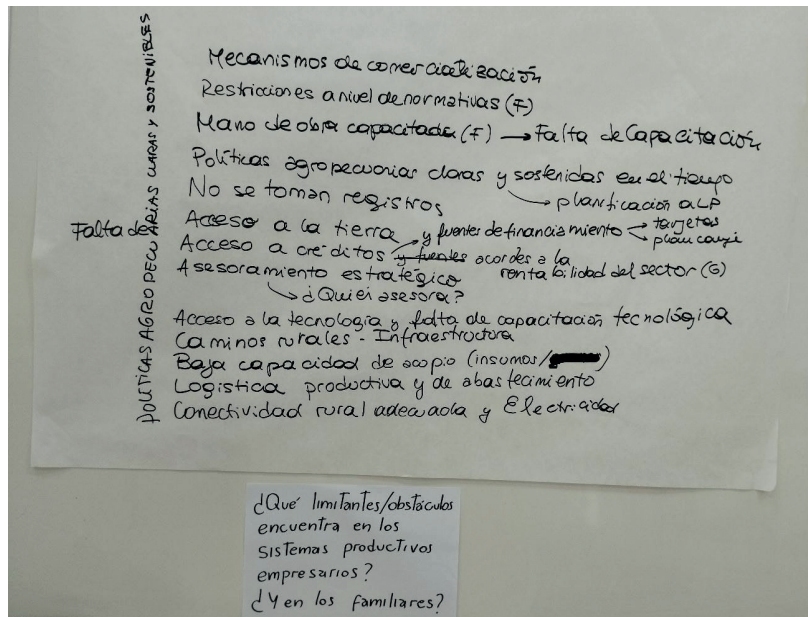 POLÍTICAS AGROPECUARIAS CLARAS Y SOSTENIBLES
Mecanismos de comercialización
Restricciones a nivel de normativas (F)
Mano de obra capacitada (F) → Falta de Capacitación
Políticas agropecuarias claras y sostenidas en el tiempo
→ planificación a LP
No se toman registros
Falta de
Acceso a la tierra
Acceso a créditos y fuentes de financiamiento → tarjetas
plan canje
y fuentes acordes a la rentabilidad del sector (G)
Asesoramiento estratégico
→ ¿Quién asesora?
Acceso a la tecnología y falta de capacitación tecnológica
Caminos rurales - Infraestructura
Baja capacidad de acopio (insumos/ )
Logística productiva y de abastecimiento
Conectividad rural adecuada y Electricidad
¿Qué limitantes/obstáculos
encuentra en los
sistemas productivos
empresarios?
¿Y en los familiares?